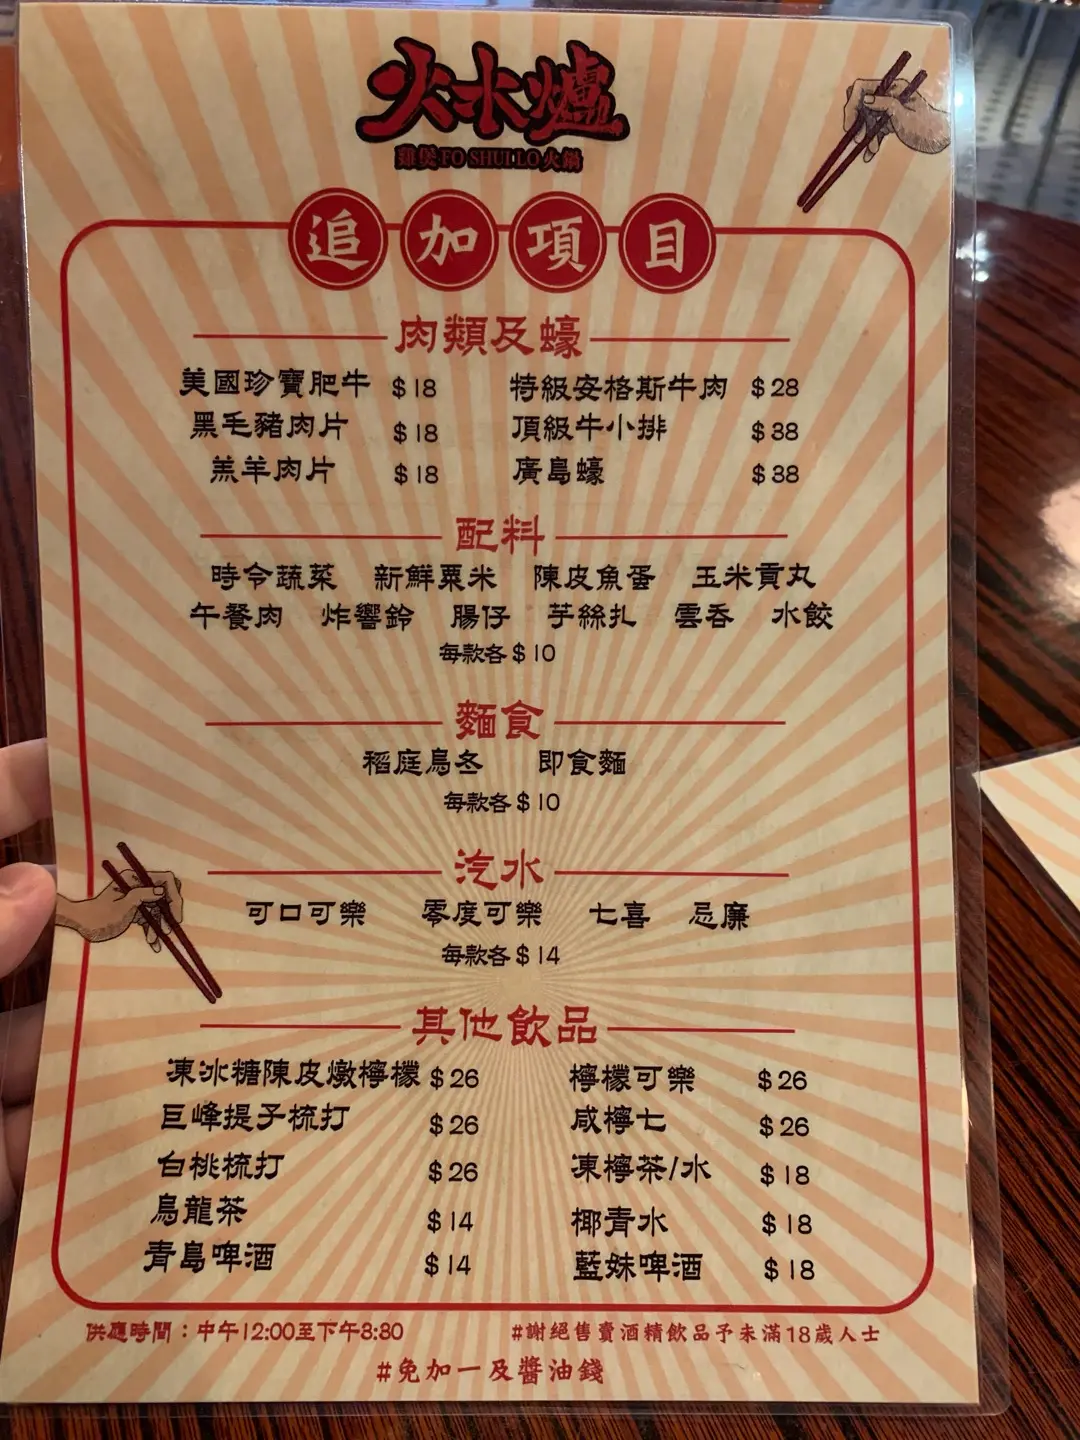 火水爐
雞煲FO SHUI LO火鍋
追加項目
肉類及蠔
美國珍寶肥牛 $18 特級安格斯牛肉 $28
黑毛豬肉片 $18 頂級牛小排 $38
羔羊肉片 $18 廣島蠔 $38
配料
時令蔬菜 新鮮粟米 陳皮魚蛋 玉米貢丸
午餐肉 炸響鈴 腸仔 芋絲扎 雲吞 水餃
每款各$10
麵食
稻庭烏冬 即食麵
每款各$10
汽水
可口可樂 零度可樂 七喜 忌廉
每款各$14
其他飲品
凍冰糖陳皮燉檸檬 $26 檸檬可樂 $26
巨峰提子梳打 $26 咸檸七 $26
白桃梳打 $26 凍檸茶/水 $18
烏龍茶 $14 椰青水 $18
青島啤酒 $14 藍妹啤酒 $18
供應時間：中午12:00至下午3:30 #謝絕售賣酒精飲品予未滿18歲人士
#免加一及醬油錢